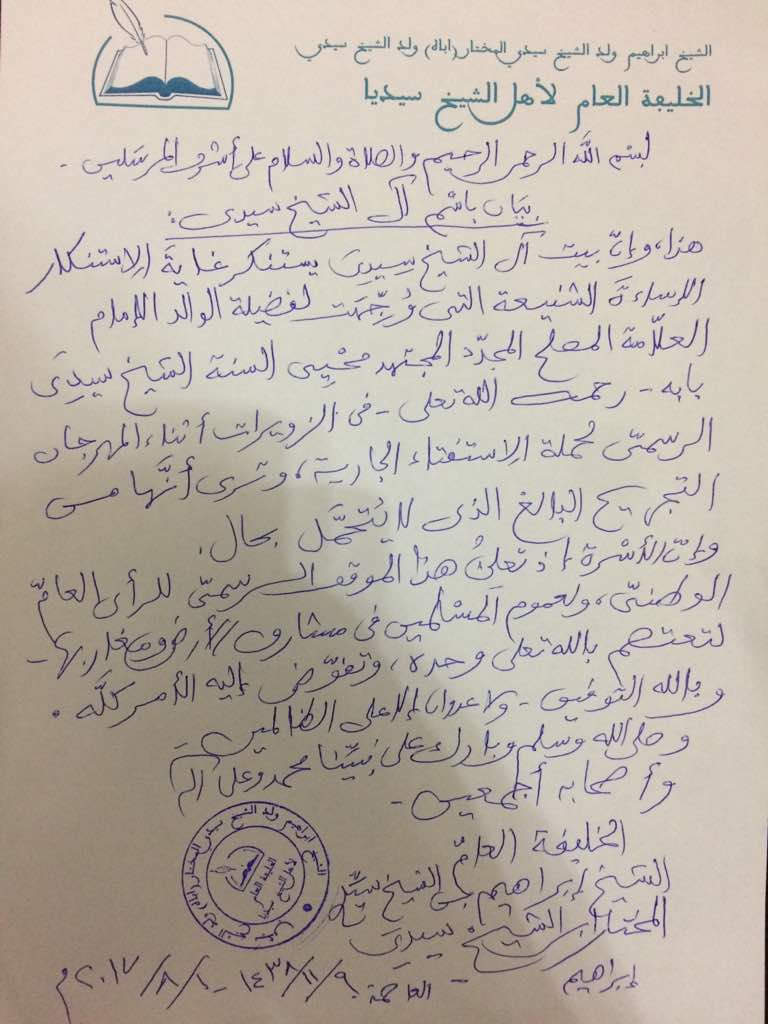 الشيخ ابراهيم ولد الشيخ سيدي المختار (اباه) ولد الشيخ سيدي
الخليفة العام لأهل الشيخ سيديا
بسم الله الرحمن الرحيم والصلاة والسلام على أشرف المرسلين -
بيان باسم آل الشيخ سيدي:
هذا، وإنّ بيت آل الشيخ سيدي يستنكر غاية الاستنكار
الإساءة الشنيعة التي وُجِّهت لفضيلة الوالد الإمام
العلّامة المصلح المجدّد المجتهد محيي السنة الشيخ سيدي
بابه - رحمه الله تعالى - في الزويرات أثناء المهرجان
الرسميّ لحملة الاستفتاء الجارية، وترى أنّها من
التجريح البالغ الذي لا يُتحمَّل بحال.
وإنّ الأسرة إذ تعلن هذا الموقف الرسميّ للرأي العامّ
الوطنيّ، ولعموم المسلمين في مشارق الأرض ومغاربها -
لتعتصم بالله تعالى وحده، وتفوّض إليه الأمر كلّه.
وبالله التوفيق - ولا عدوان إلا على الظالمين
وصلى الله وسلم وبارك على نبيّنا محمد وعلى آله
وأصحابه أجمعين -
الخليفة العامّ
الشيخ إبراهيم بن الشيخ سيدي
المختار ابن الشيخ سيدي
إبراهيم
العاصمة - ٩/١١/١٤٣٨ - ١/٨/٢٠١٧م
الشيخ ابراهيم ولد الشيخ سيدي المختار (اباه) ولد الشيخ سيدي
الخليفة العام
لأهل الشيخ سيديا